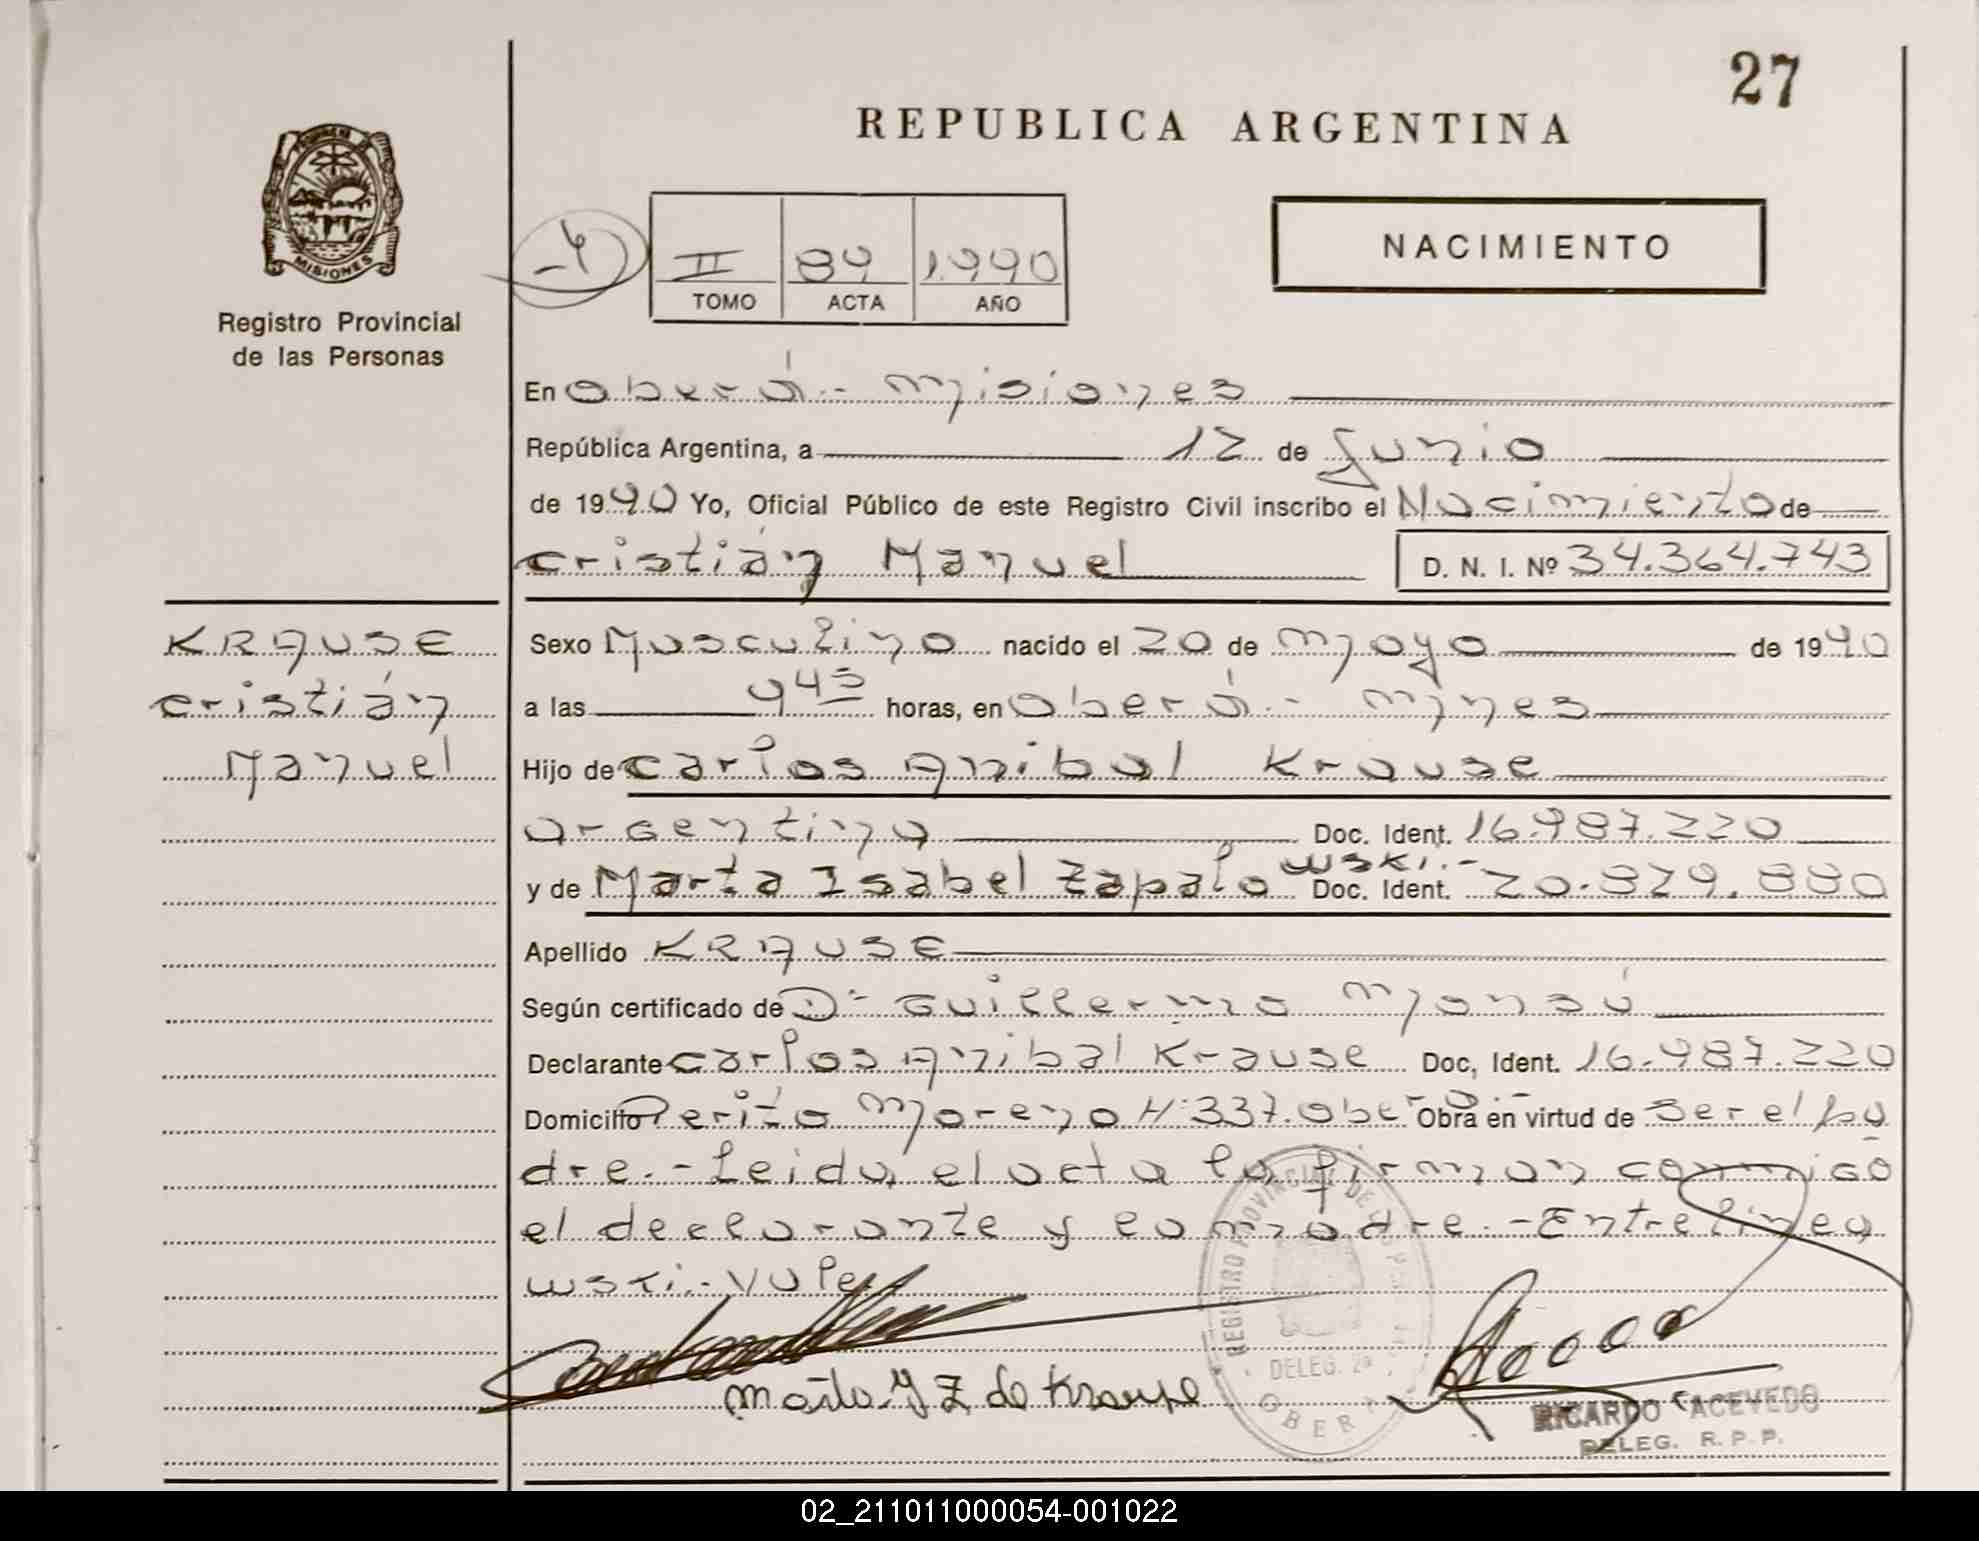 27
REPUBLICA ARGENTINA
MISIONES
Registro Provincial
de las Personas
II 89 1.990
TOMO ACTA AÑO
NACIMIENTO
En Oberá.- Misiones
República Argentina, a 12 de Junio
de 1990 Yo, Oficial Público de este Registro Civil inscribo el Nacimiento de
Cristián Manuel D. N. I. Nº 34.364.743
KRAUSE
Cristián
Manuel
Sexo Masculino nacido el 20 de Mayo de 1990
a las 9 45 horas, en Oberá.- Mnes
Hijo de Carlos Anibal Krause
argentino Doc. Ident. 16.987.220
wski.-
y de Marta Isabel Zapalo Doc. Ident. 20.829.880
Apellido KRAUSE
Según certificado de Dr Guillermo Monsú
Declarante Carlos Anibal Krause Doc, Ident. 16.987.220
Domicilio Perito Moreno Nº 337.Oberá.- Obra en virtud de ser el pa
dre.- Leida el acta la firman conmigo
el declarante y la madre.- Entre linea
wski.- Vale
Marta I Z de Krause
REGISTRO PROVINCIAL DE LAS P
DELEG. 2a
OBERA
RICARDO ACEVEDO
DELEG. R. P. P.
02_211011000054-001022